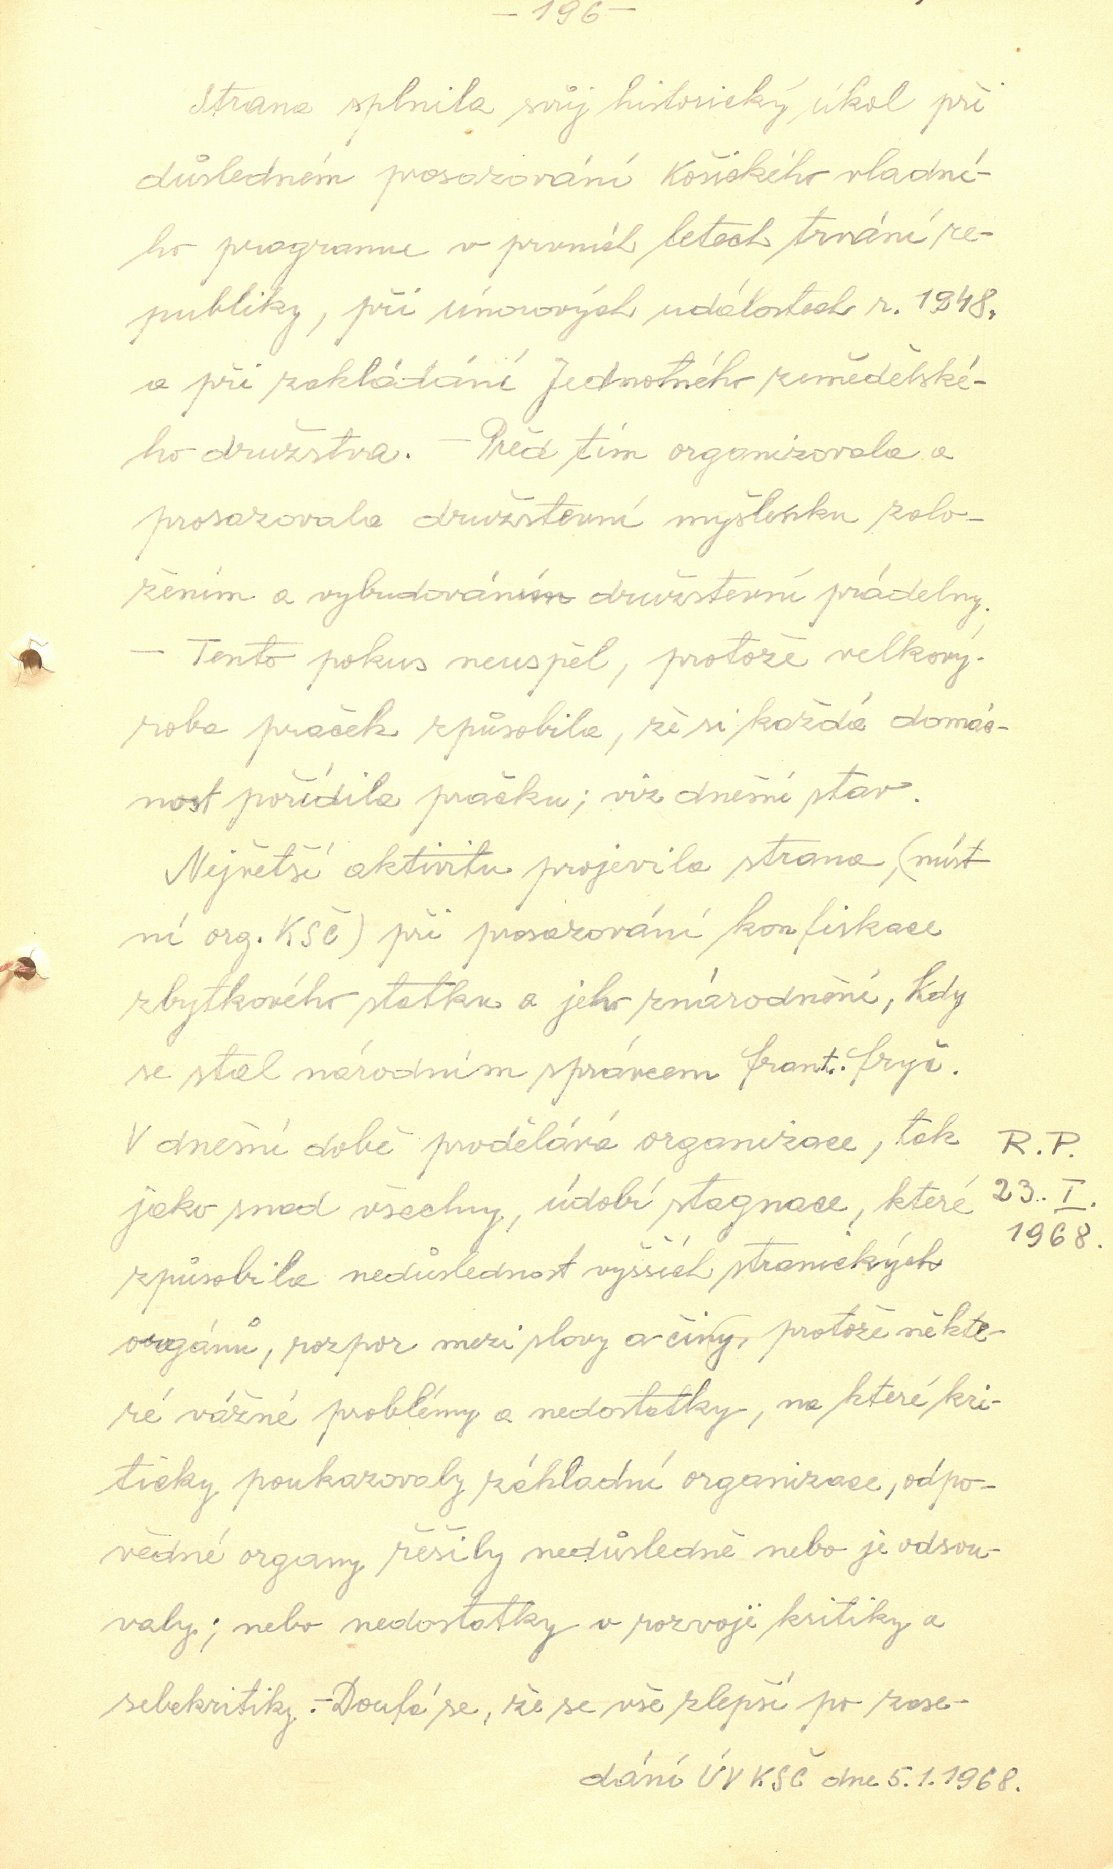 – 196 –
Strana splnila svůj historický úkol při
důsledném prosazování Košického vládní-
ho programu v prvních letech trvání re-
publiky, při únorových událostech r. 1948,
a při zakládání Jednotného zemědělské-
ho družstva. – Před tím organizovala a
prosazovala družstevní myšlenku zalo-
žením a vybudováním družstevní prádelny.
– Tento pokus neuspěl, protože velkový-
roba praček způsobila, že si každá domác-
nost pořídila pračku; viz dnešní stav.
Největší aktivitu projevila strana, (míst
ní org. KSČ) při prosazování konfiskace
zbytkového statku a jeho znárodnění, kdy
se stal národním správcem frant. fryč.
V dnešní době prodělává organizace, tak
jako snad všechny, údobí stagnace, které
R. P.
23. I.
1968.
způsobila nedůslednost vyšších stranických
orgánů, rozpor mezi slovy a činy, protože někte-
ré vážné problémy a nedostatky, na které kri-
ticky poukazovaly základní organizace, odpo-
vědné organy řešily nedůsledně nebo je odsou-
valy; nebo nedostatky v rozvoji kritiky a
sebekritiky. – Doufá se, že se vše zlepší po zase-
dání ÚV KSČ dne 5. 1. 1968.